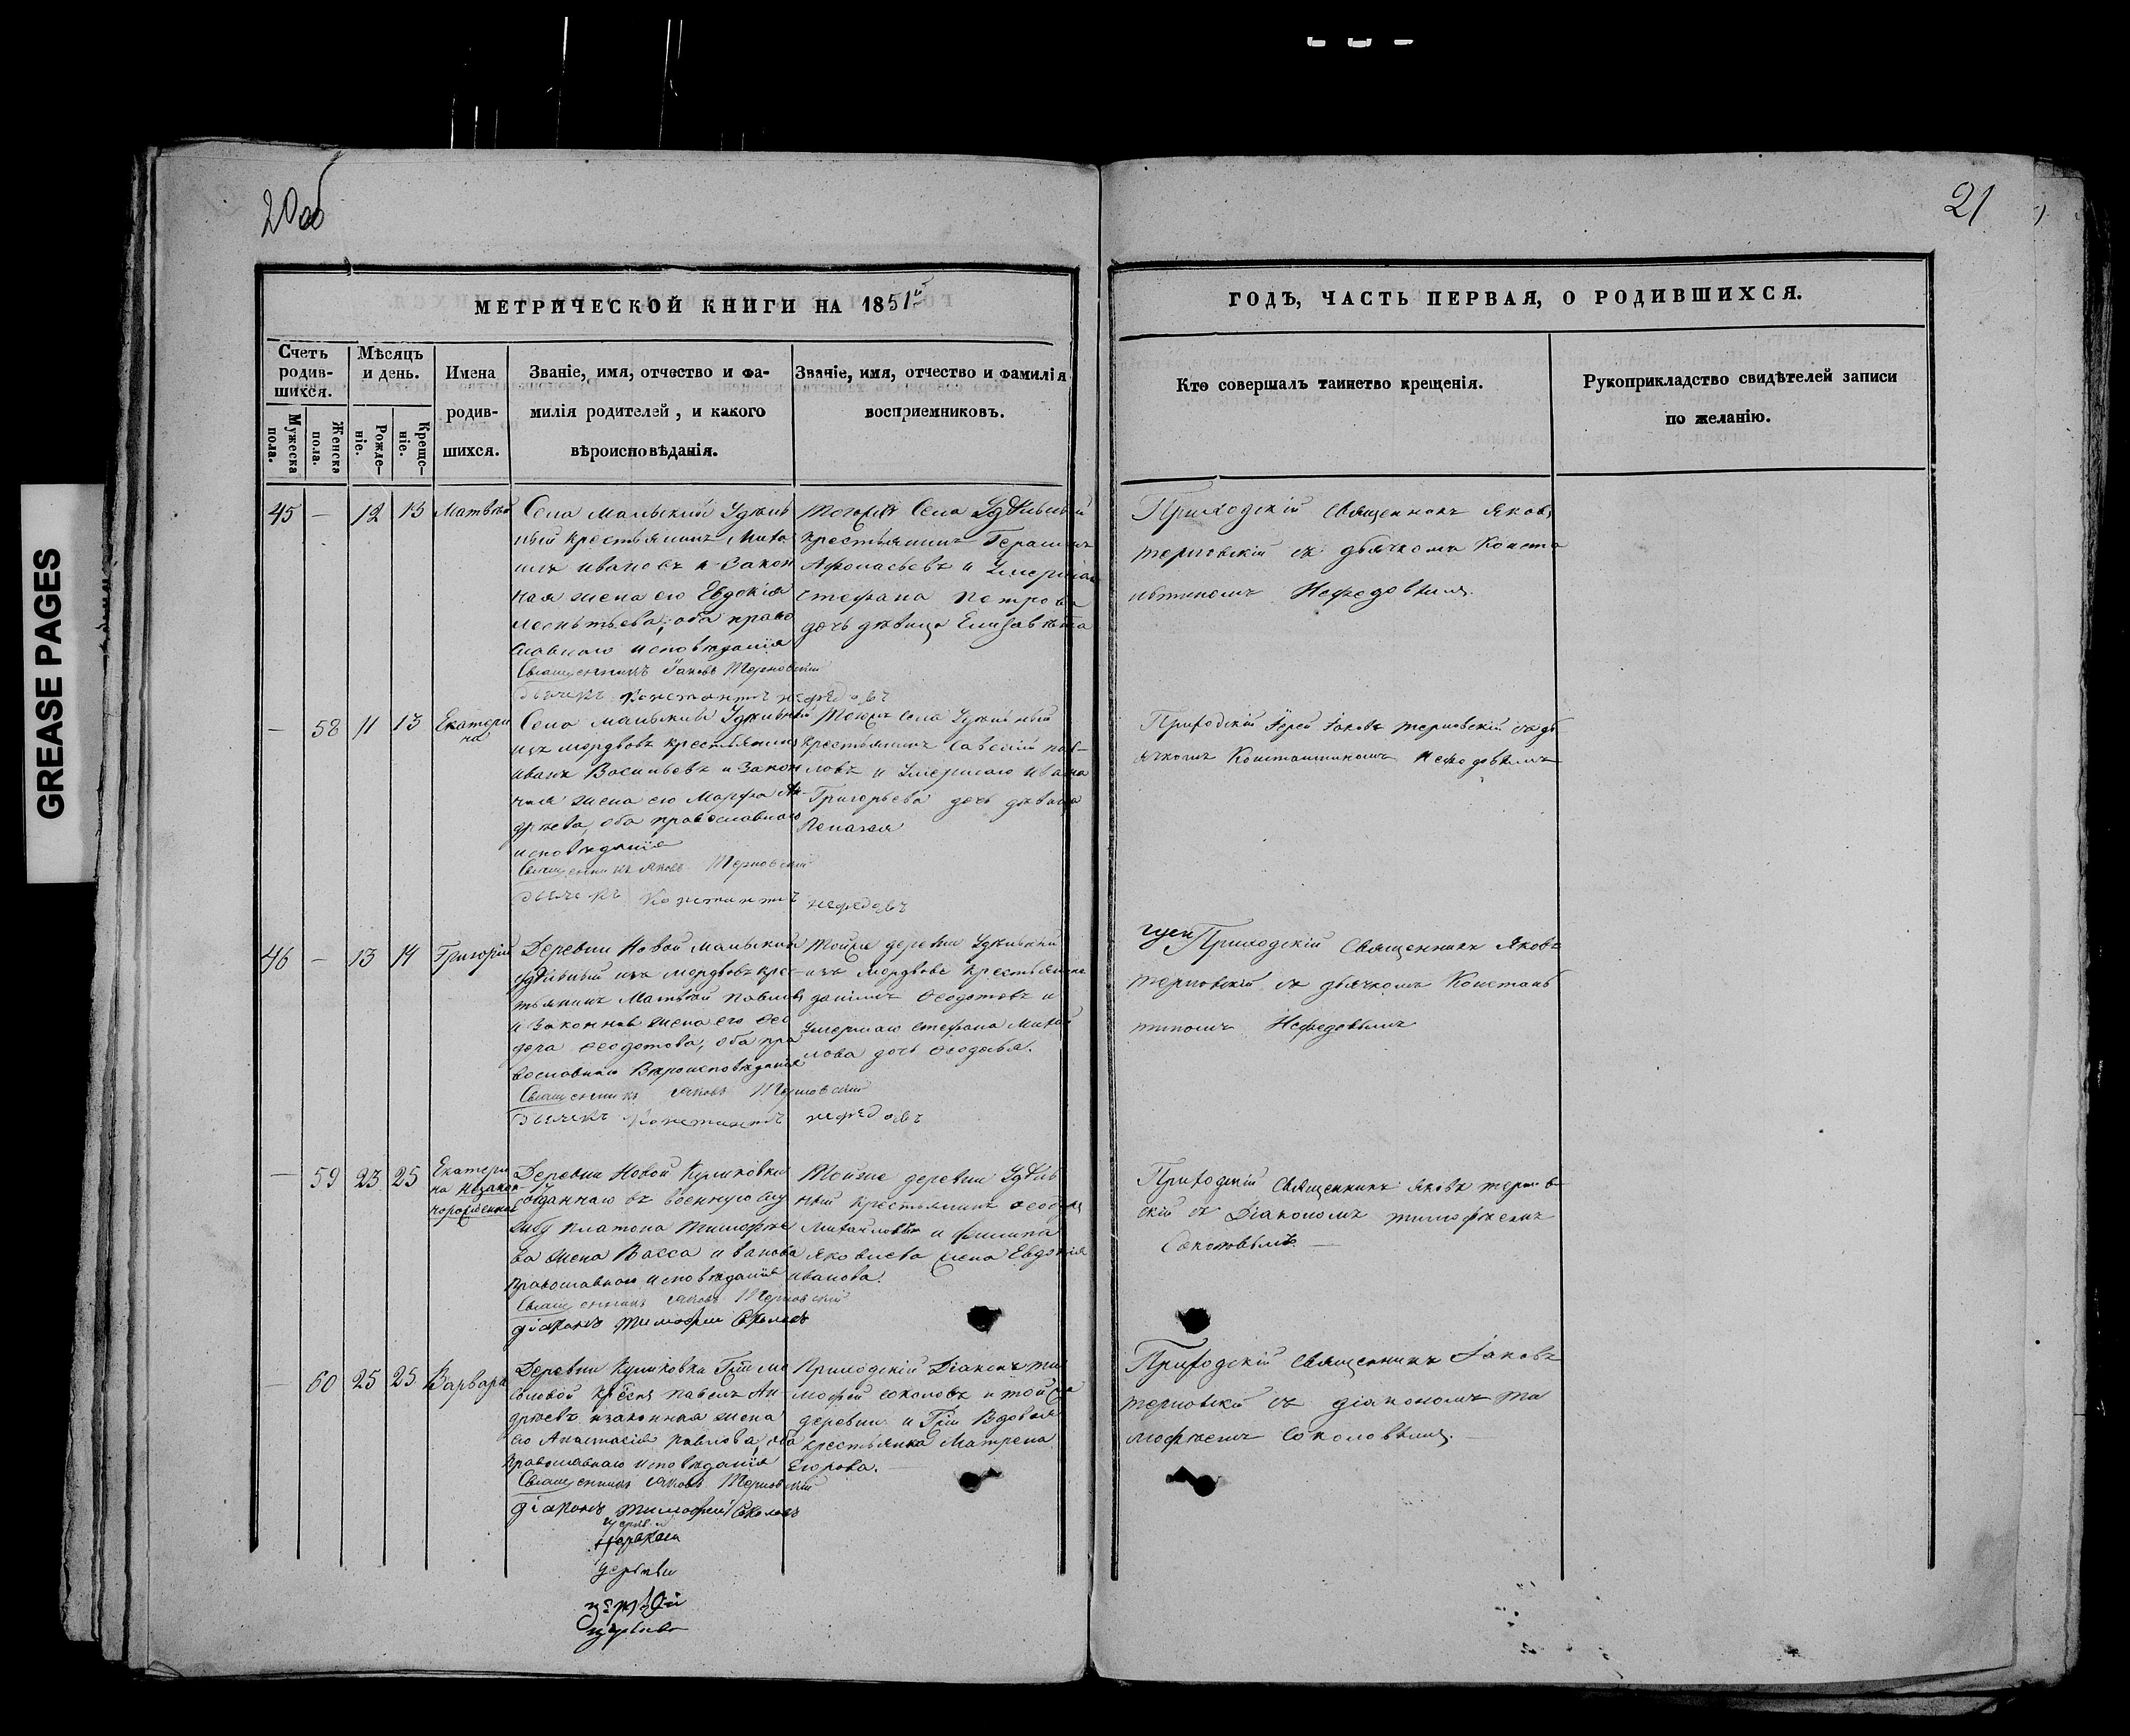 20 об
21
МЕТРИЧЕСКОЙ КНИГИ НА 1851й
ГОДЪ, ЧАСТЬ ПЕРВАЯ, О РОДИВШИХСЯ.
Счетъ родив-шихся.
Мужеска пола.
Женска пола.
Мѣсяцъ и день.
Рожде-ніе.
Креще-ніе.
Имена
родив-
шихся.
Званіе, имя, отчество и фа-
милія родителей, и какого
вѣроисповѣданія.
Званіе, имя, отчество и фамилія
восприемниковъ.
Кто совершалъ таинство крещенія.
Рукоприкладство свидѣтелей записи
по желанію.
45 — 12 13 Матвѣй
Села Малыкий Удѣль
ный крестьянинъ Миха
илъ Ивановъ и закон
ная жена его Евдокія
оба право
славнаго исповѣданія
Священникъ Іаковъ Терновскій
Дьячекъ Константинъ Нефедовъ
Тогожъ Села Удѣльный
крестьянинъ Герасимъ
Афонасьевъ и умершаго
Стефана Петрова
дочь дѣвица Елизавѣта
Приходскій Священникъ Яковъ
Терновскій съ дьячкомъ Конста
нтиномъ Нефедовымъ.
— 58 11 13 Екатери
на
Села Малыкий Удѣльный
изъ мордвовъ крестьянинъ
Иванъ Васильевъ и закон
ная жена его Марфа Ан-
дрѣева, оба православнаго
исповѣданія
Священникъ Яковъ Терновскій
Дьячекъ Константинъ Нефедовъ
Тогожъ села Удѣльный
крестьянинъ Савелій Пав-
ловъ и умершаго Ивана
Григорьева дочь дѣвица
Пелагея
Приходскій Іерей Іаковъ Терновскій съ дь
ячкомъ Константиномъ Нефедовымъ
46 — 13 14 Григорій
Деревни Новой Малыкий
удѣльный изъ мордвовъ крес-
тьянинъ Матвѣй Павловъ
и законная жена его Фео
дора Феодотова, оба пра
вославнаго вѣроисповѣданія
Священникъ Яковъ Терновскій
Дьячекъ Константинъ Нефедовъ
Тойже деревни Удѣльный
изъ мордвовъ крестьянинъ
Данилъ Феодотовъ и
умершаго Стефана Михай
лова дочь Феодосья.
Приходскій Священникъ Яковъ
Терновскій съ дьячкомъ Констан
тиномъ Нефедовымъ
— 59 23 25 Екатери
на незакон-
норожденная
Деревни Новой Куликовки
отданнаго въ военную слу
жбу Платона Тимофѣе
ва жена Васса Иванова
православнаго исповѣданія
Священникъ Яковъ Терновскій
Діаконъ Тимофѣй Соколовъ
Тойже деревни Удѣль
ный крестьянинъ
Михайловъ и Филипа
Яковлева жена Евдокія
Иванова.
Приходскій Священникъ Яковъ Тернов
скій съ Діакономъ Тимофѣемъ
Соколовымъ. —
— 60 25 25 Варвара
Деревни Куликовка Гжи
Павелъ Ан
дрѣевъ и законная жена
его Анастасія Павлова, оба
православнаго исповѣданія
Священникъ Яковъ Терновскій
Діаконъ Тимофѣй Соколовъ
Приходскій Діаконъ Ти
мофѣй Соколовъ и той же
деревни и Гжи вдовая
крестьянка Матрена
Егорова. —
Приходскій Священникъ Іаковъ
Терновскій съ діакономъ Ти
мофѣемъ Соколовымъ. —
GREASE PAGES